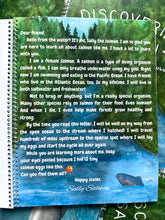 DISCOVE
Dear friend,
Hello from the water! It's me, Sally the salmon. I am so glad you
are here to learn all about salmon like me. I have a lot to share
with you.
I am a female salmon. A salmon is a type of living organism
called a fish. I can only breathe underwater using my gills. Right
now I am swimming and eating in the Pacific Ocean. I have friends
who live in the Atlantic Ocean, too. In my lifetime, I will live in
both saltwater and freshwater!
Not to brag or anything, but I'm a really special organism.
Many other species rely on salmon for their food. Even humans!
And when I die, I even help make forests grow healthy and
strong.
By the time you read this letter, I will be well on my way from
the open ocean to the stream where I hatched! I will travel
hundreds of miles upstream to this special spot where I will lay
my eggs and start the cycle all over again.
While you are learning more about me, keep
your eyes peeled because I hid 12 tiny
salmon eggs like this.
Can you find them all?
Happy trails,
Sally Salmon